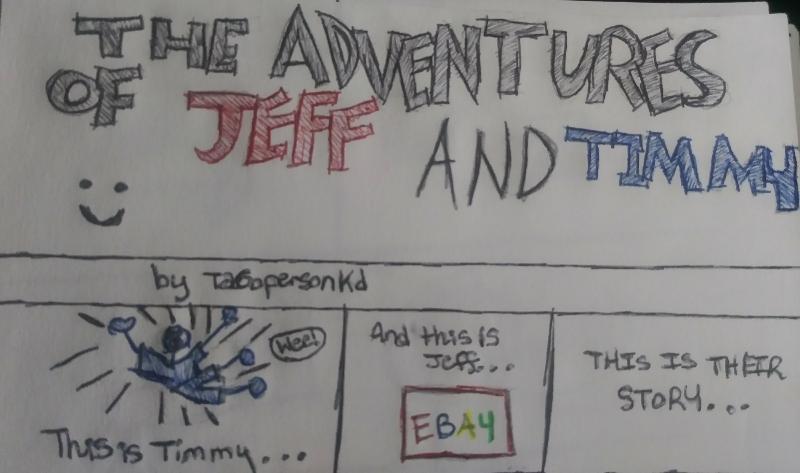 THE ADVENTURES
OF JEFF AND TIMMY
by
Wee!
This is Timmy...
And this is
Jeff...
EBAY
THIS IS THEIR
STORY...